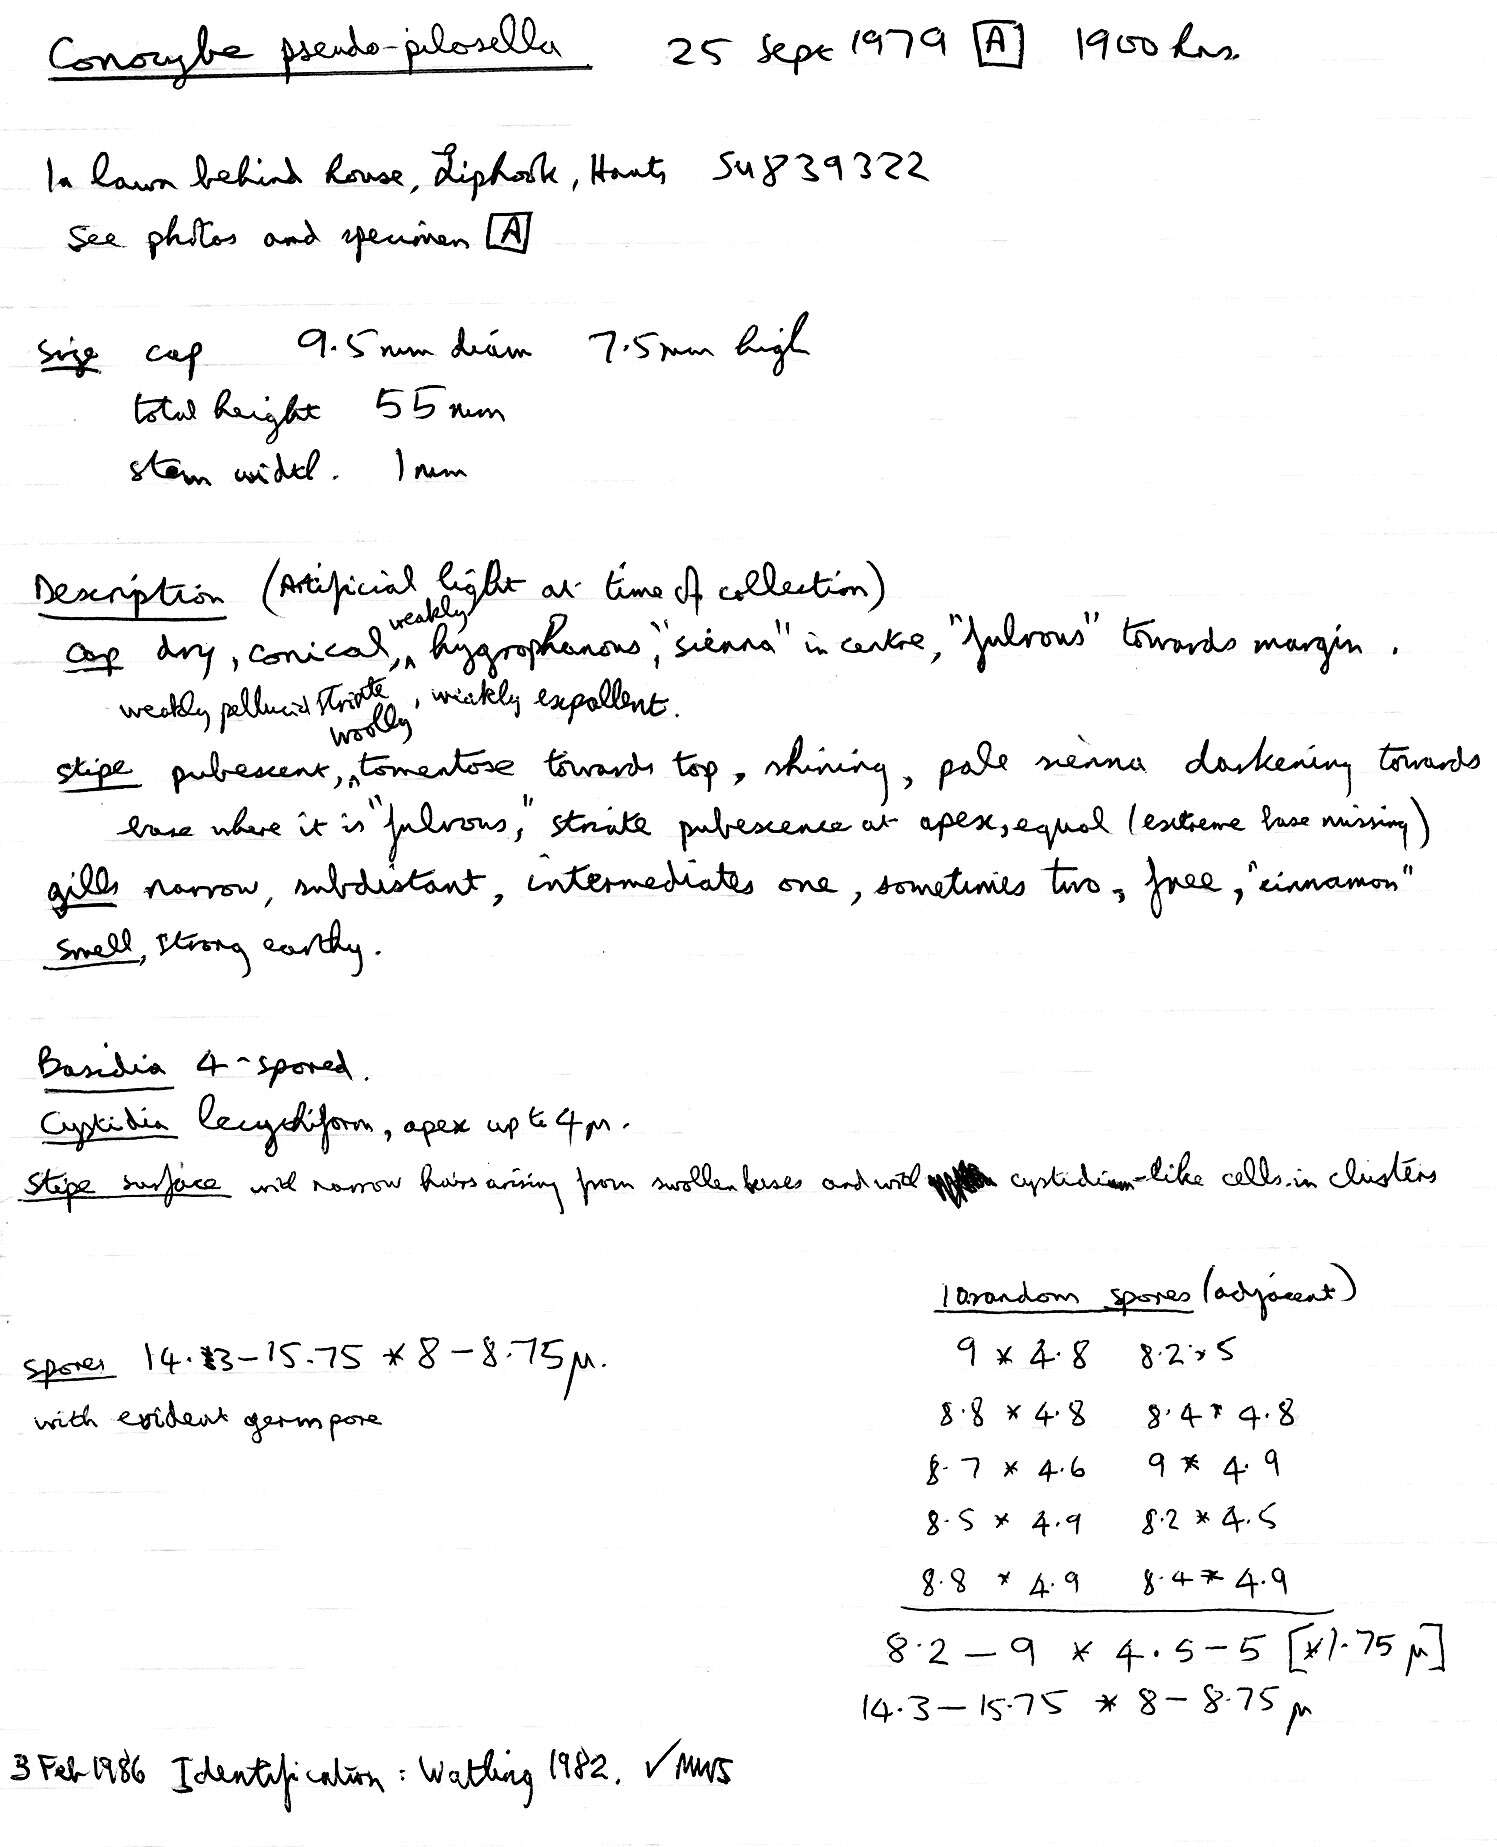 Conocybe pseudo-pilosella 25 Sept 1979 [A] 1900 hrs.
In lawn behind house, Liphook, Hants SU839322
See photos and specimen [A]
size cap 9.5mm diam 7.5mm high
total height 55mm
stem width. 1mm
Description (Artificial light at time of collection)
cap dry, conical, weakly hygrophanous, "sienna" in centre, "fulvous" towards margin.
weakly pellucid striate, weakly expallent.
stipe pubescent, woolly tomentose towards top, shining, pale sienna darkening towards
base where it is "fulvous," striate pubescence at apex, equal (extreme base missing)
gills narrow, subdistant, intermediates one, sometimes two, free, "cinnamon"
Smell, strong earthy.
Basidia 4-spored.
Cystidia lecythiform, apex up to 4µ.
Stipe surface with narrow hairs arising from swollen bases and with cystidium-like cells in clusters
10 random spores (adjacent)
spores 14.3-15.75 * 8-8.75µ.
with evident germ pore
9 * 4.8 8.2 * 5
8.8 * 4.8 8.4 * 4.8
8.7 * 4.6 9 * 4.9
8.5 * 4.9 8.2 * 4.5
8.8 * 4.9 8.4 * 4.9
8.2-9 * 4.5-5 [*1.75µ]
14.3-15.75 * 8-8.75µ
3 Feb 1986 Identification: Watling 1982. ✓ MWS